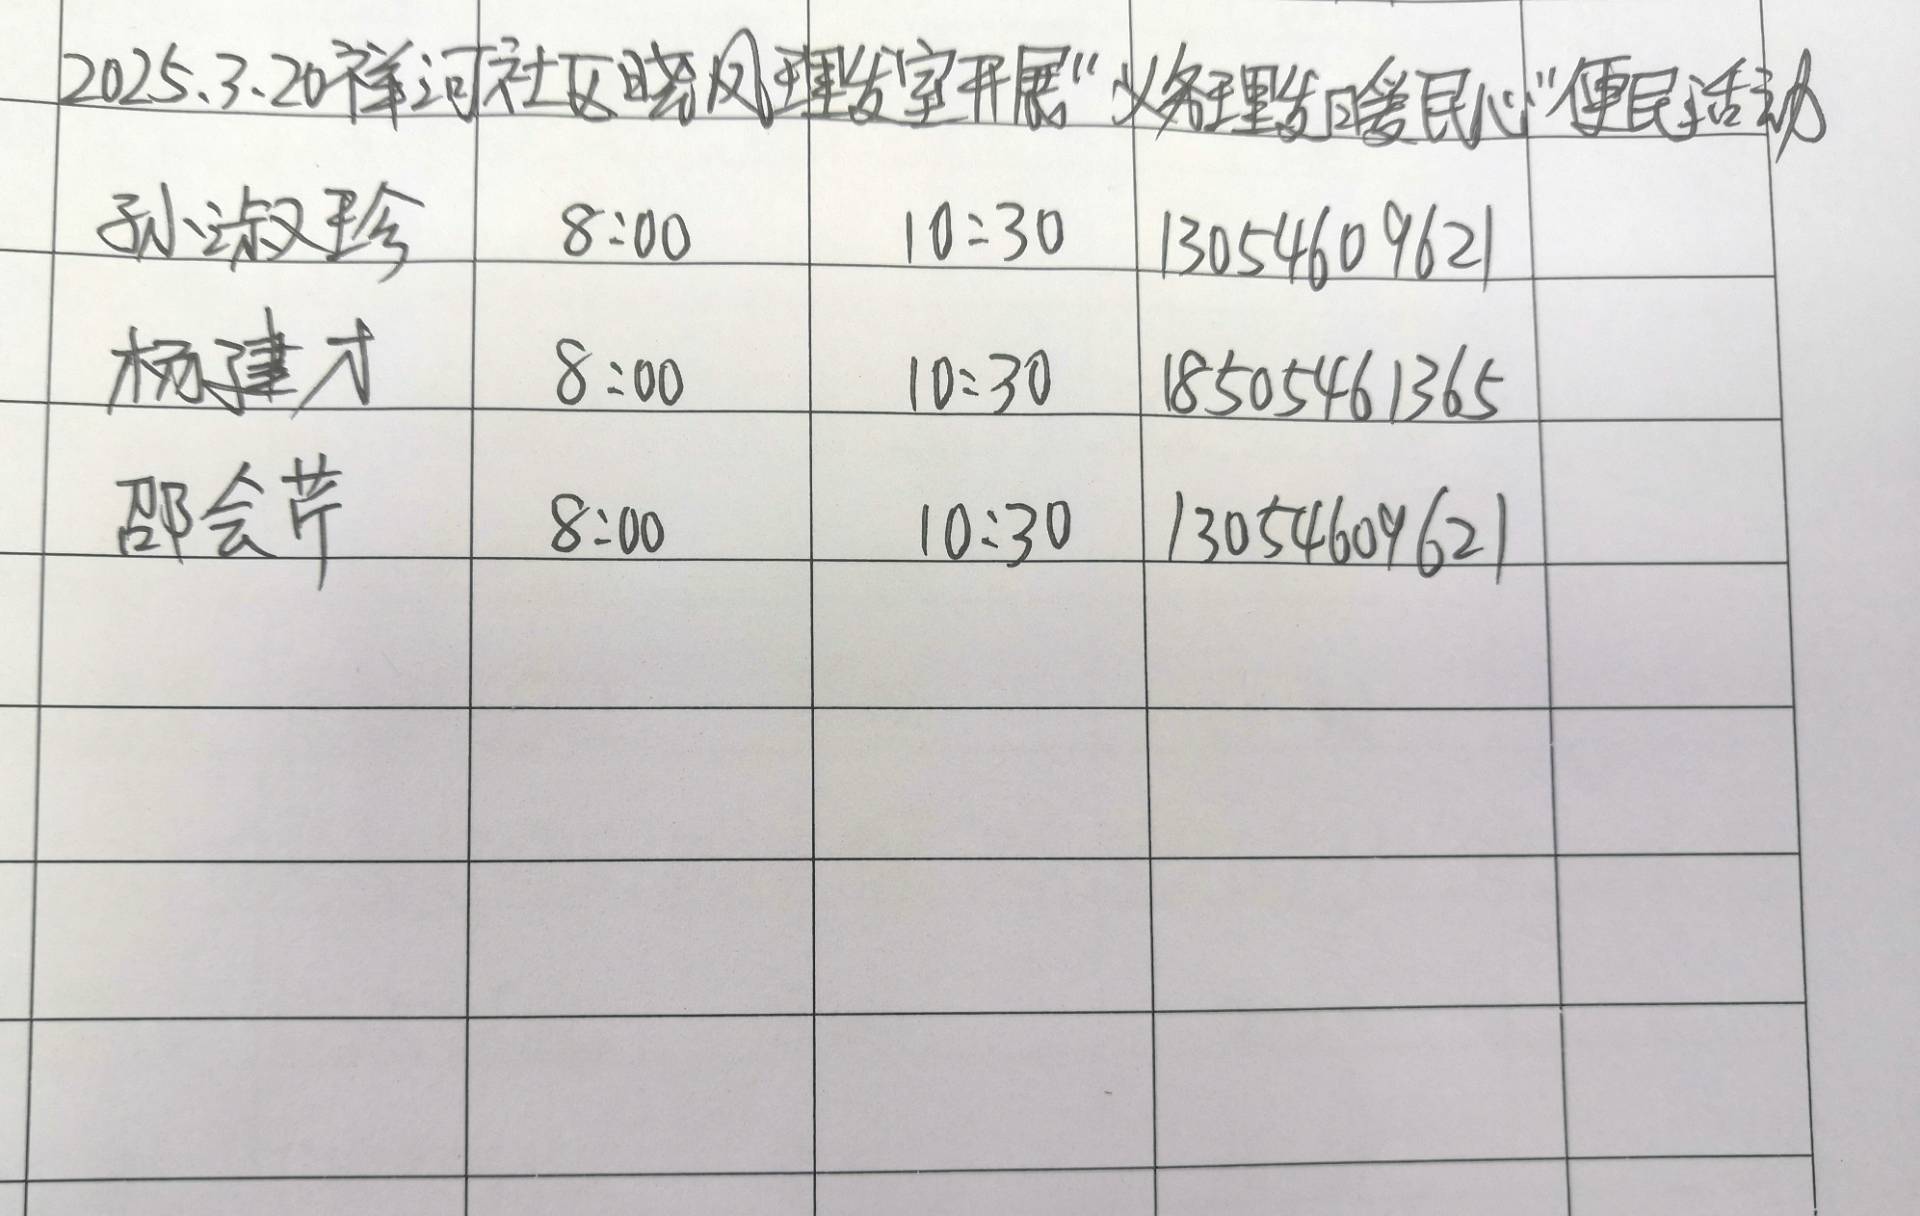 2025.3.20祥河社区晓风理发室开展“义务理发日暖民心”便民活动
孙淑珍 8:00 10:30 13054609621
杨建才 8:00 10:30 18505461365
邵会芹 8:00 10:30 13054609621